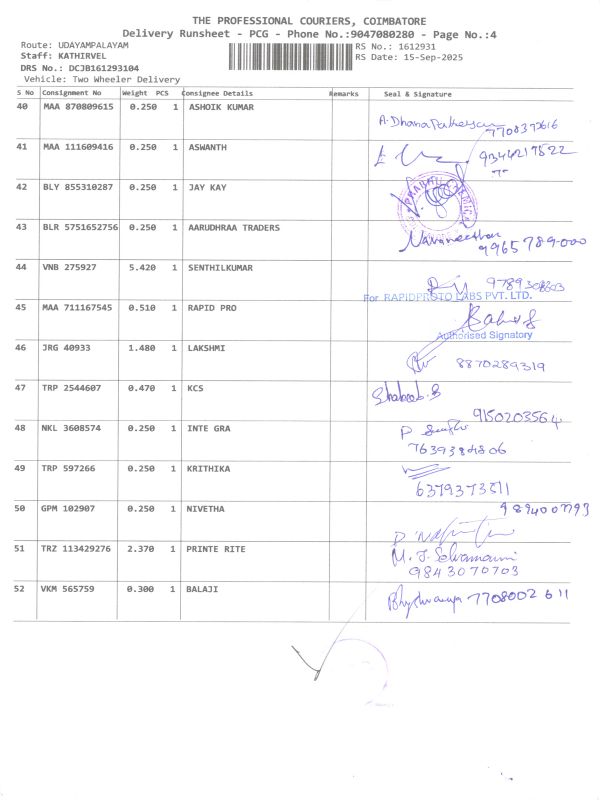 THE PROFESSIONAL COURIERS, COIMBATORE
Delivery Runsheet - PCG - Phone No.:9047080280 - Page No.:4
Route: UDAYAMPALAYAM RS No.: 1612931
Staff: KATHIRVEL RS Date: 15-Sep-2025
DRS No.: DCJB161293104
Vehicle: Two Wheeler Delivery
S No Consignment No Weight PCS Consignee Details Remarks Seal & Signature
40 MAA 870809615 0.250 1 ASHOIK KUMAR
41 MAA 111609416 0.250 1 ASWANTH 9344217522
42 BLY 855310287 0.250 1 JAY KAY
43 BLR 5751652756 0.250 1 AARUDHRAA TRADERS
9965789000
44 VNB 275927 5.420 1 SENTHILKUMAR
For RAPIDPROTO LABS PVT. LTD.
45 MAA 711167545 0.510 1 RAPID PRO
Authorised Signatory
46 JRG 40933 1.480 1 LAKSHMI 8870289319
47 TRP 2544607 0.470 1 KCS
9150203564
48 NKL 3608574 0.250 1 INTE GRA
49 TRP 597266 0.250 1 KRITHIKA
50 GPM 102907 0.250 1 NIVETHA
51 TRZ 113429276 2.370 1 PRINTE RITE
9843070703
52 VKM 565759 0.300 1 BALAJI 7708002611